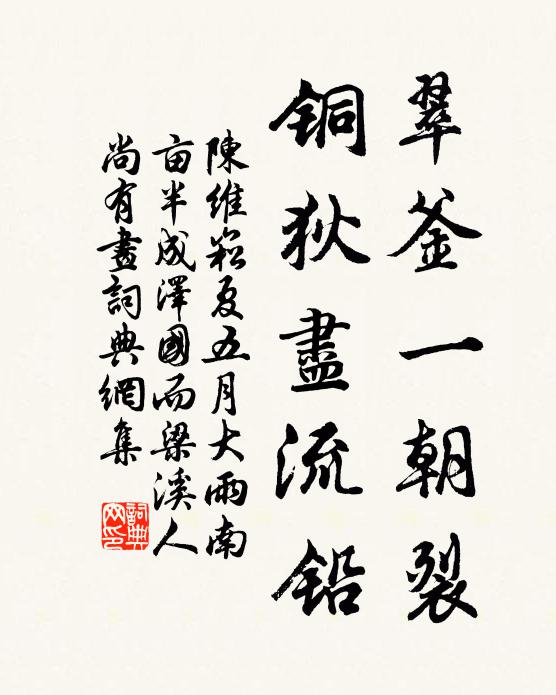 翠釜一朝裂
铜狄盡流铅
陳維崧夏五月大雨南
亩半成澤國而梁溪人
尚有畫詞典網集
詞典
网印